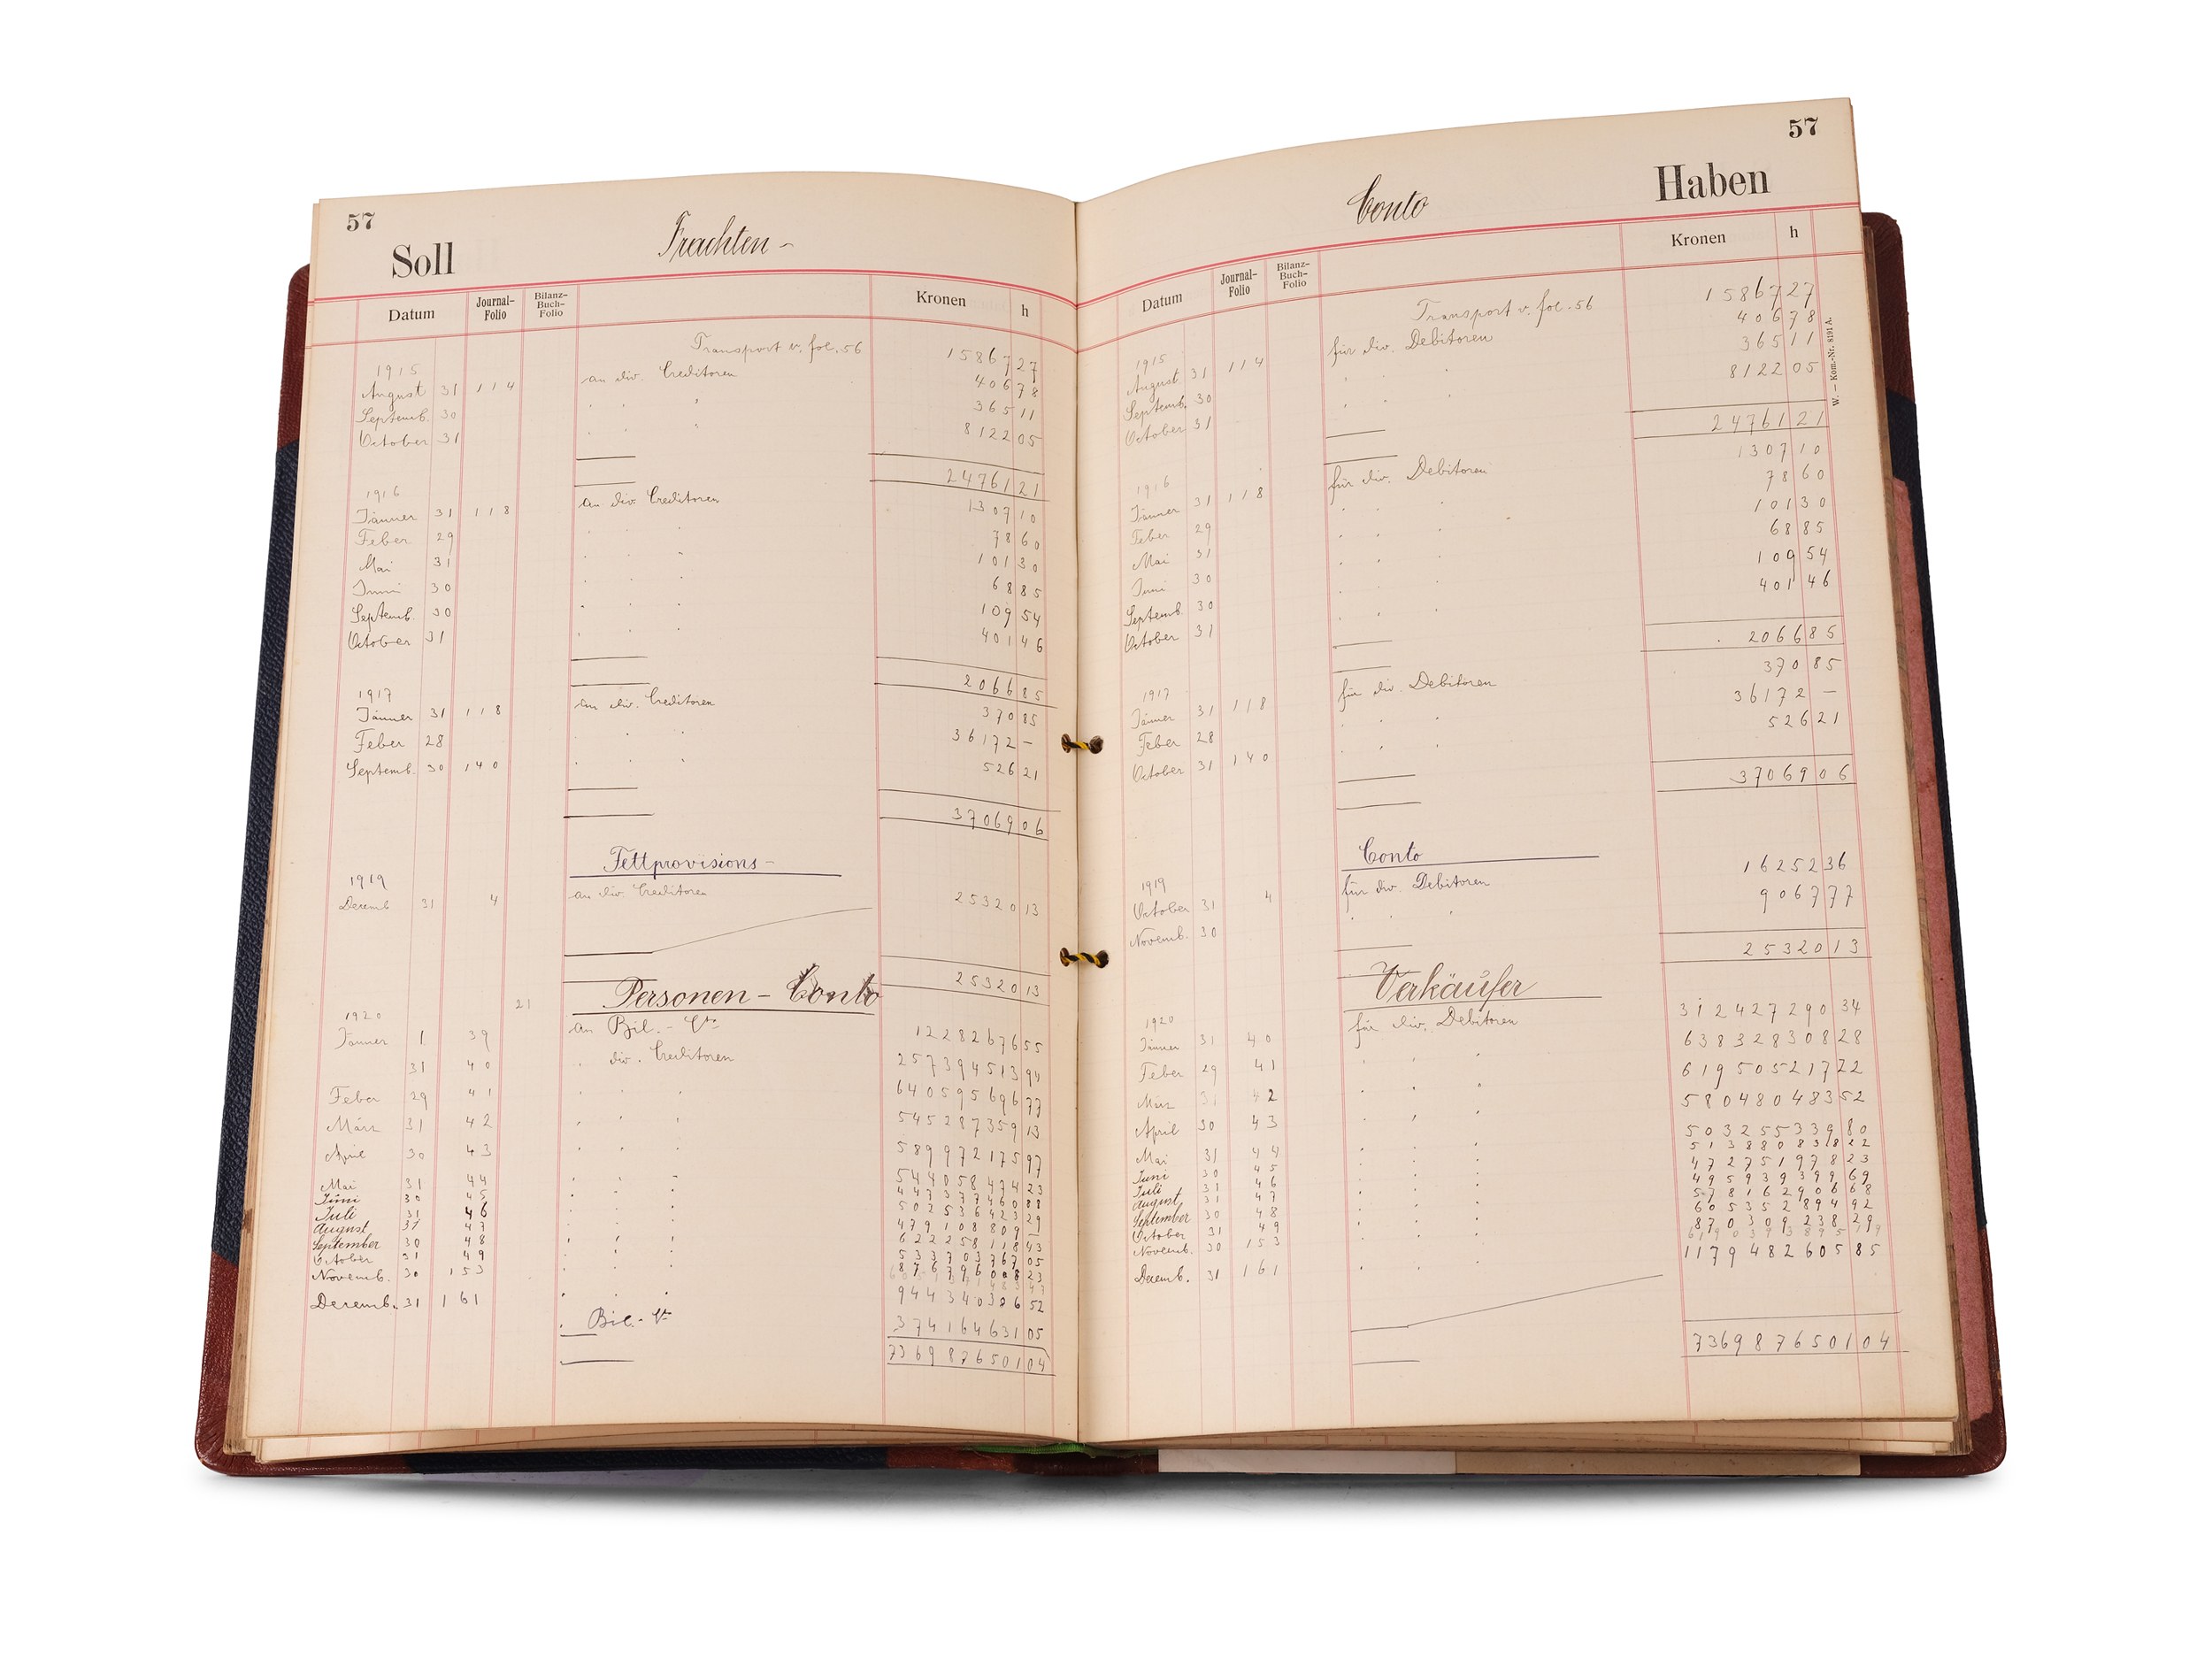 57
Soll Frachten-
Datum Journal-Folio Bilanz-Buch-Folio Kronen h
Transport v. fol. 56 15867 27
1915
August 31 114 an div. Creditoren 406 78
Septemb. 30 " " " 365 11
October 31 " " " 8122 05
24761 21
1916
Jänner 31 118 an div. Creditoren 1307 10
Feber 29 " " " 78 60
Mai 31 " " " 101 30
Juni 30 " " " 68 85
Septemb. 30 " " " 109 54
October 31 " " " 401 46
2066 85
1917
Jänner 31 118 an div. Creditoren 370 85
Feber 28 " " " 36172 –
Septemb. 30 140 " " " 526 21
37069 06
Fettprovisions-
1919
Decemb 31 4 an div. Creditoren 25320 13
25320 13
Personen-Conto
21
1920
Jänner 1 39 an Bil.- 12282676 55
31 40 " div. Creditoren 257394513 94
Feber 29 41 " " " 640595696 77
März 31 42 " " " 545287359 13
April 30 43 " " " 589972175 97
Mai 31 44 " " " 544058474 23
Juni 30 45 " " " 88
Juli 31 46 " " " 502536423 29
August 31 47 " " " 479108809 –
September 30 48 " " " 622258118 43
October 31 49 " " " 533703767 05
Novemb. 30 153 " " " 23
Decemb. 31 161 " " " 944340306 52
" Bil.- 374164631 05
7369876501 04
57
Conto Haben
Datum Journal-Folio Bilanz-Buch-Folio Kronen h
Transport v. fol. 56 15867 27
1915
August 31 114 für div. Debitoren 406 78
Septemb. 30 " " " 365 11
October 31 " " " 8122 05
24761 21
1916
Jänner 31 118 für div. Debitoren 1307 10
Feber 29 " " " 78 60
Mai 31 " " " 101 30
Juni 30 " " " 68 85
Septemb. 30 " " " 109 54
October 31 " " " 401 46
2066 85
1917
Jänner 31 118 für div. Debitoren 370 85
Feber 28 " " " 36172 –
October 31 140 " " " 526 21
37069 06
Conto
1919
October 31 4 für div. Debitoren 16252 36
Novemb. 30 " " " 9067 77
25320 13
Verkäufer
1920
Jänner 31 40 für div. Debitoren 312427290 34
Feber 29 41 " " " 638328308 28
März 31 42 " " " 619505217 22
April 30 43 " " " 580480483 52
Mai 31 44 " " " 503255339 80
Juni 30 45 " " " 513880838 22
Juli 31 46 " " " 472751978 23
August 31 47 " " " 495939399 69
September 30 48 " " " 578162906 68
October 31 49 " " " 605352894 92
Novemb. 30 153 " " " 870309238 29
Decemb. 31 161 " " " 1179482605 85
7369876501 04
W. – Kom.-Nr. 8191 A.